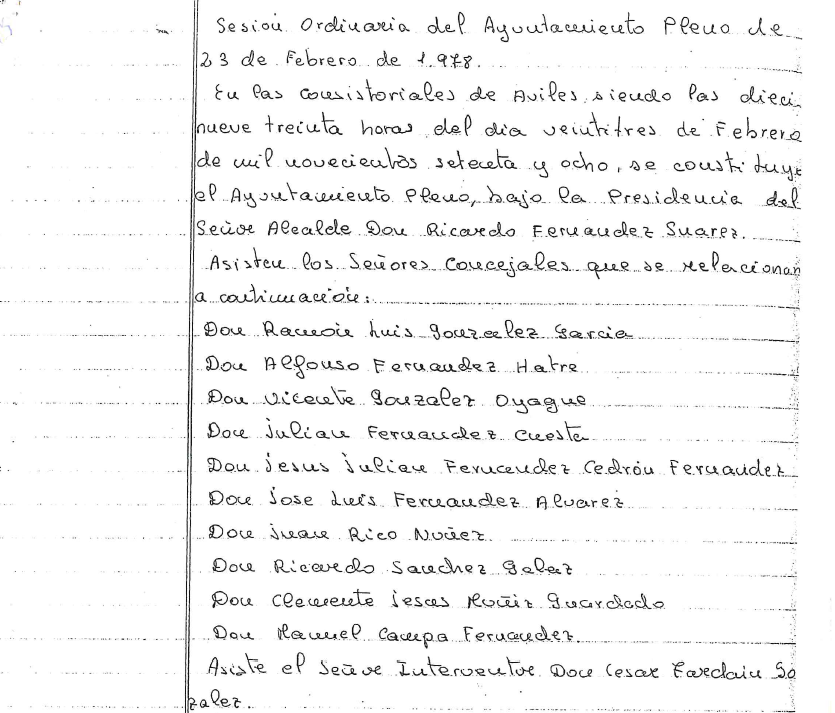 Sesión Ordinaria del Ayuntamiento Pleno de
23 de Febrero de 1.978.
En las consistoriales de Aviles, siendo las dieci
nueve treinta horas del dia veintitres de Febrero
de mil novecientos setenta y ocho, se constituye
el Ayuntamiento Pleno, bajo la Presidencia del
Señor Alcalde Don Ricardo Fernandez Suarez.
Asisten los Señores Concejales que se relacionan
a continuación:
Don Ramón Luis Gonzalez Garcia
Don Alfonso Fernandez Hatre
Don Vicente Gonzalez Oyague
Don Julian Fernandez Cuesta
Don Jesus Julian Fernandez Cedrón Fernandez
Don Jose Luis Fernandez Alvarez
Don Juan Rico Nuñez
Don Ricardo Sanchez Galaz
Don Clemente Jesus Muñiz Guardado
Don Manuel Campa Fernandez.
Asiste el Señor Interventor Don Cesar Go
zalez.